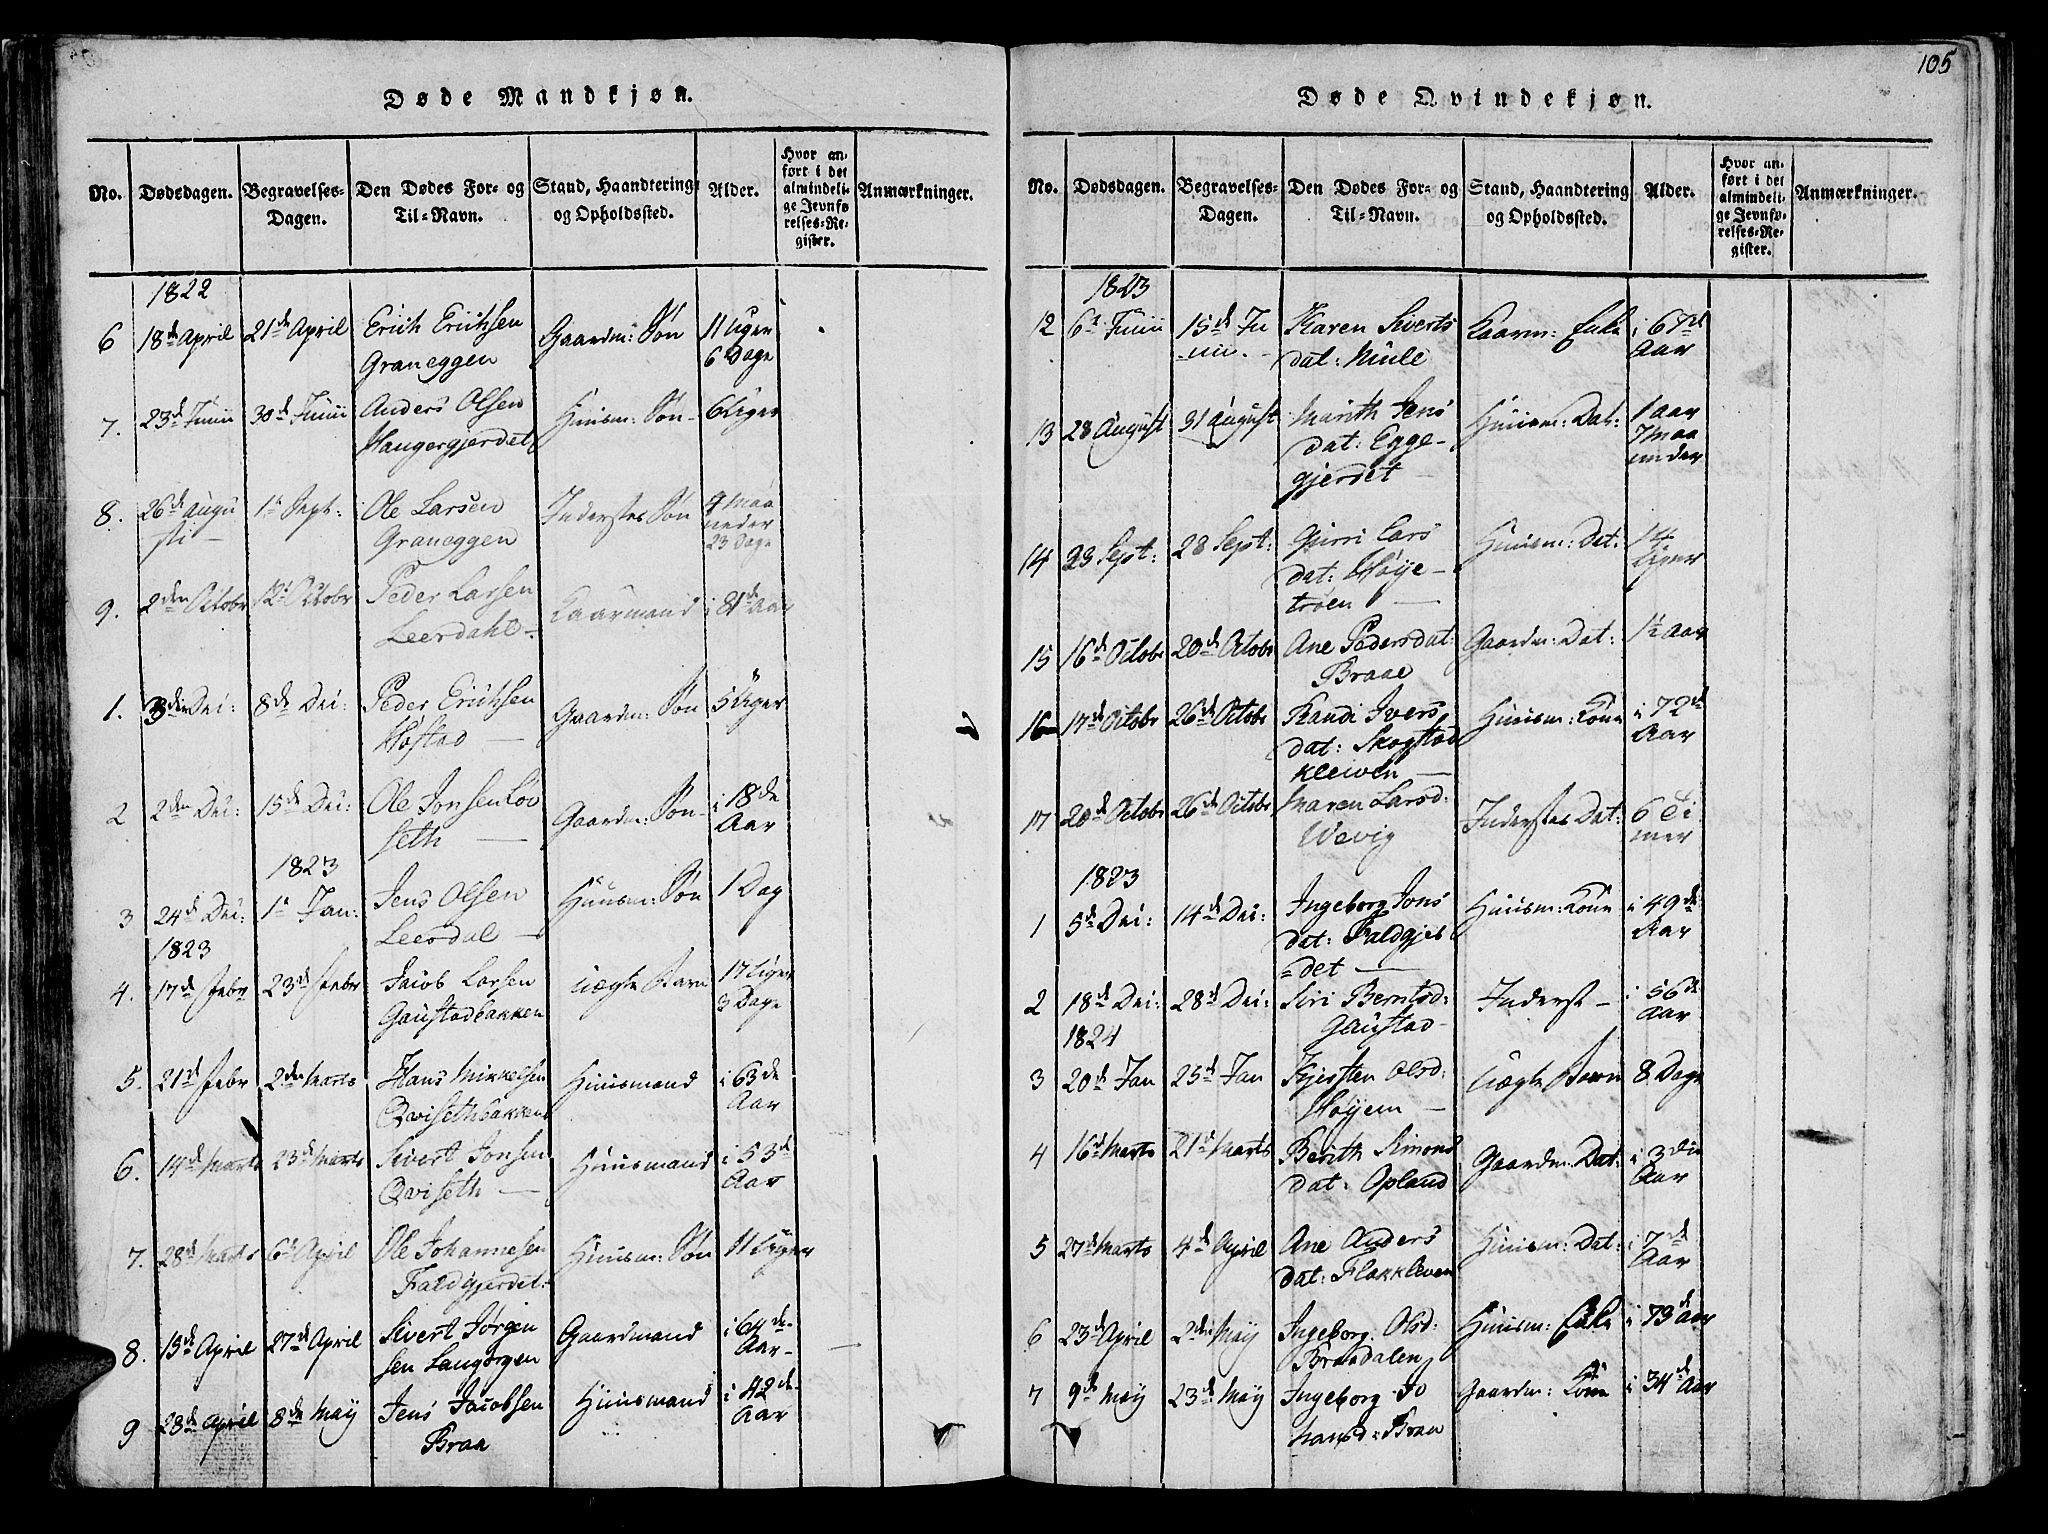 105
Døde Mandkjøn.
No.
Dødsdagen.
Begravelses-
Dagen.
Den Dødes For- og
Til-Navn.
Stand, Haandtering
og Opholdssted.
Alder.
Hvor an-
ført i det
almindeli-
ge Jevnfø-
relses-Re-
gister.
Anmærkninger.
1822
6 18de April 21de April Erich Erichsen Gaardm: Søn 11 Uger
Graneggen 6 Dage
7. 23de Junii 30de Junii Anders Olsen Huusm: Søn- 6 Uger
Haugergjerdet
8. 26de Augu 1te Sept: Ole Larsen Inderstes Søn 9 Maa
sti - Graneggen neder
23 Dage
9. 2den Octobr 12te Octobr Peder Larsen Kaarmand i 81de Aar
Leerdahl -
1. 3den Dec: 8de Dec: Peder Erichsen Gaardm: Søn 5 Uger
Høstad -
2 2den Dec: 15de Dec: Ole Jonsen Løv Gaardm: Søn- i 18de
seth - Aar
1823
3 24de Dec: 1te Jan: Jens Olsen Huusm: Søn 1 Dag
Leerdal -
1823
4. 17de Febr 23de Febr Jacob Larsen Uægte Barn 17 Uger
Gaustadbakken 3 Dage
5. 21de Febr 2den Marts Hans Mikkelsen Huusmand i 63de
Qvisethbakken Aar
6. 14de Marts 23de Marts Sivert Jonsen Huusmand i 53de
Qviseth - Aar
7. 28de Marts 6te April Ole Johannesen Huusm: Søn 11 Uger
Faldgjerdet -
8. 13de April 27de April Sivert Jørgen Gaardmand i 64de-
sen Langørgen Aar-
9 28de April 8de May Jens Jacobsen Huusmand i 42de-
Braa Aar
Døde Qvindekjøn.
No.
Dødsdagen.
Begravelses-
Dagen.
Den Dødes For- og
Til-Navn.
Stand, Haandtering
og Opholdssted.
Alder.
Hvor an-
ført i det
almindeli-
ge Jevnfø-
relses-Re-
gister.
Anmærkninger.
1823
12 6te Junii 15de Ju Karen Siverts Kaarm: Enke i 67de
nii. - dat: Mule Aar
13 28 August 31 August Marith Jens Huusm: Dat: 1 Aar
dat: Egge- 7 Maa
gjerdet - neder
14 23 Sept: 28 Sept: Gurri Lars Huusm: Dat: 14
dat: Høye- Uger
troen -
15 16de Octobr 20de Octobr Ane Pedersdat: Gaardm: Dat: 1½ Aar
Braae
16 17de Octobr 26de Octobr Randi Ivers Huusm: Kone i 72de
dat: Skogstad Aar
kleiven -
17 20de Octobr 26de Octobr Maren Larsd: Inderstes Dat: 6 Ti
Wevig mer
1823
1 5te Dec: 14de Dec: Ingeborg Jons Huusm: Kone i 49de
dat: Faldgjer Aar
=det -
2 18de Dec: 28de Dec: Siri Berntsd: Inderst - i 56de
Gaustad- Aar
1824
3 20de Jan 25de Jan Kjersten Olsd: Uægte Barn 8 Dage
Høyem -
4 16de Marts 21de Marts Berith Simons Gaardm: Dat: i 3die
dat: Opland Aar
5 27de Marts 4de April Ane Anders Huusm: Dat: i 7de
dat: Flakkleven Aar
6 23de April 2den May Ingeborg Olsd: Huusm: Enke i 73de Aar
Braadalen
7 9de May 23de May Ingeborg Jo Gaardm: Kone i 34de Aar
hansd: Braa